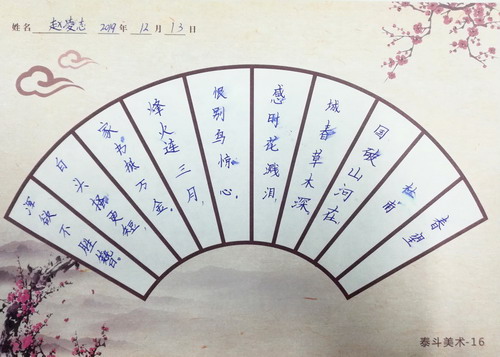 姓名 赵凌志 2019年 12月 13日
春望
杜甫
国破山河在,
城春草木深
感时花溅泪,
恨别鸟惊心。
烽火连三月,
家书抵万金。
白头搔更短,
浑欲不胜簪。
泰斗美术-16